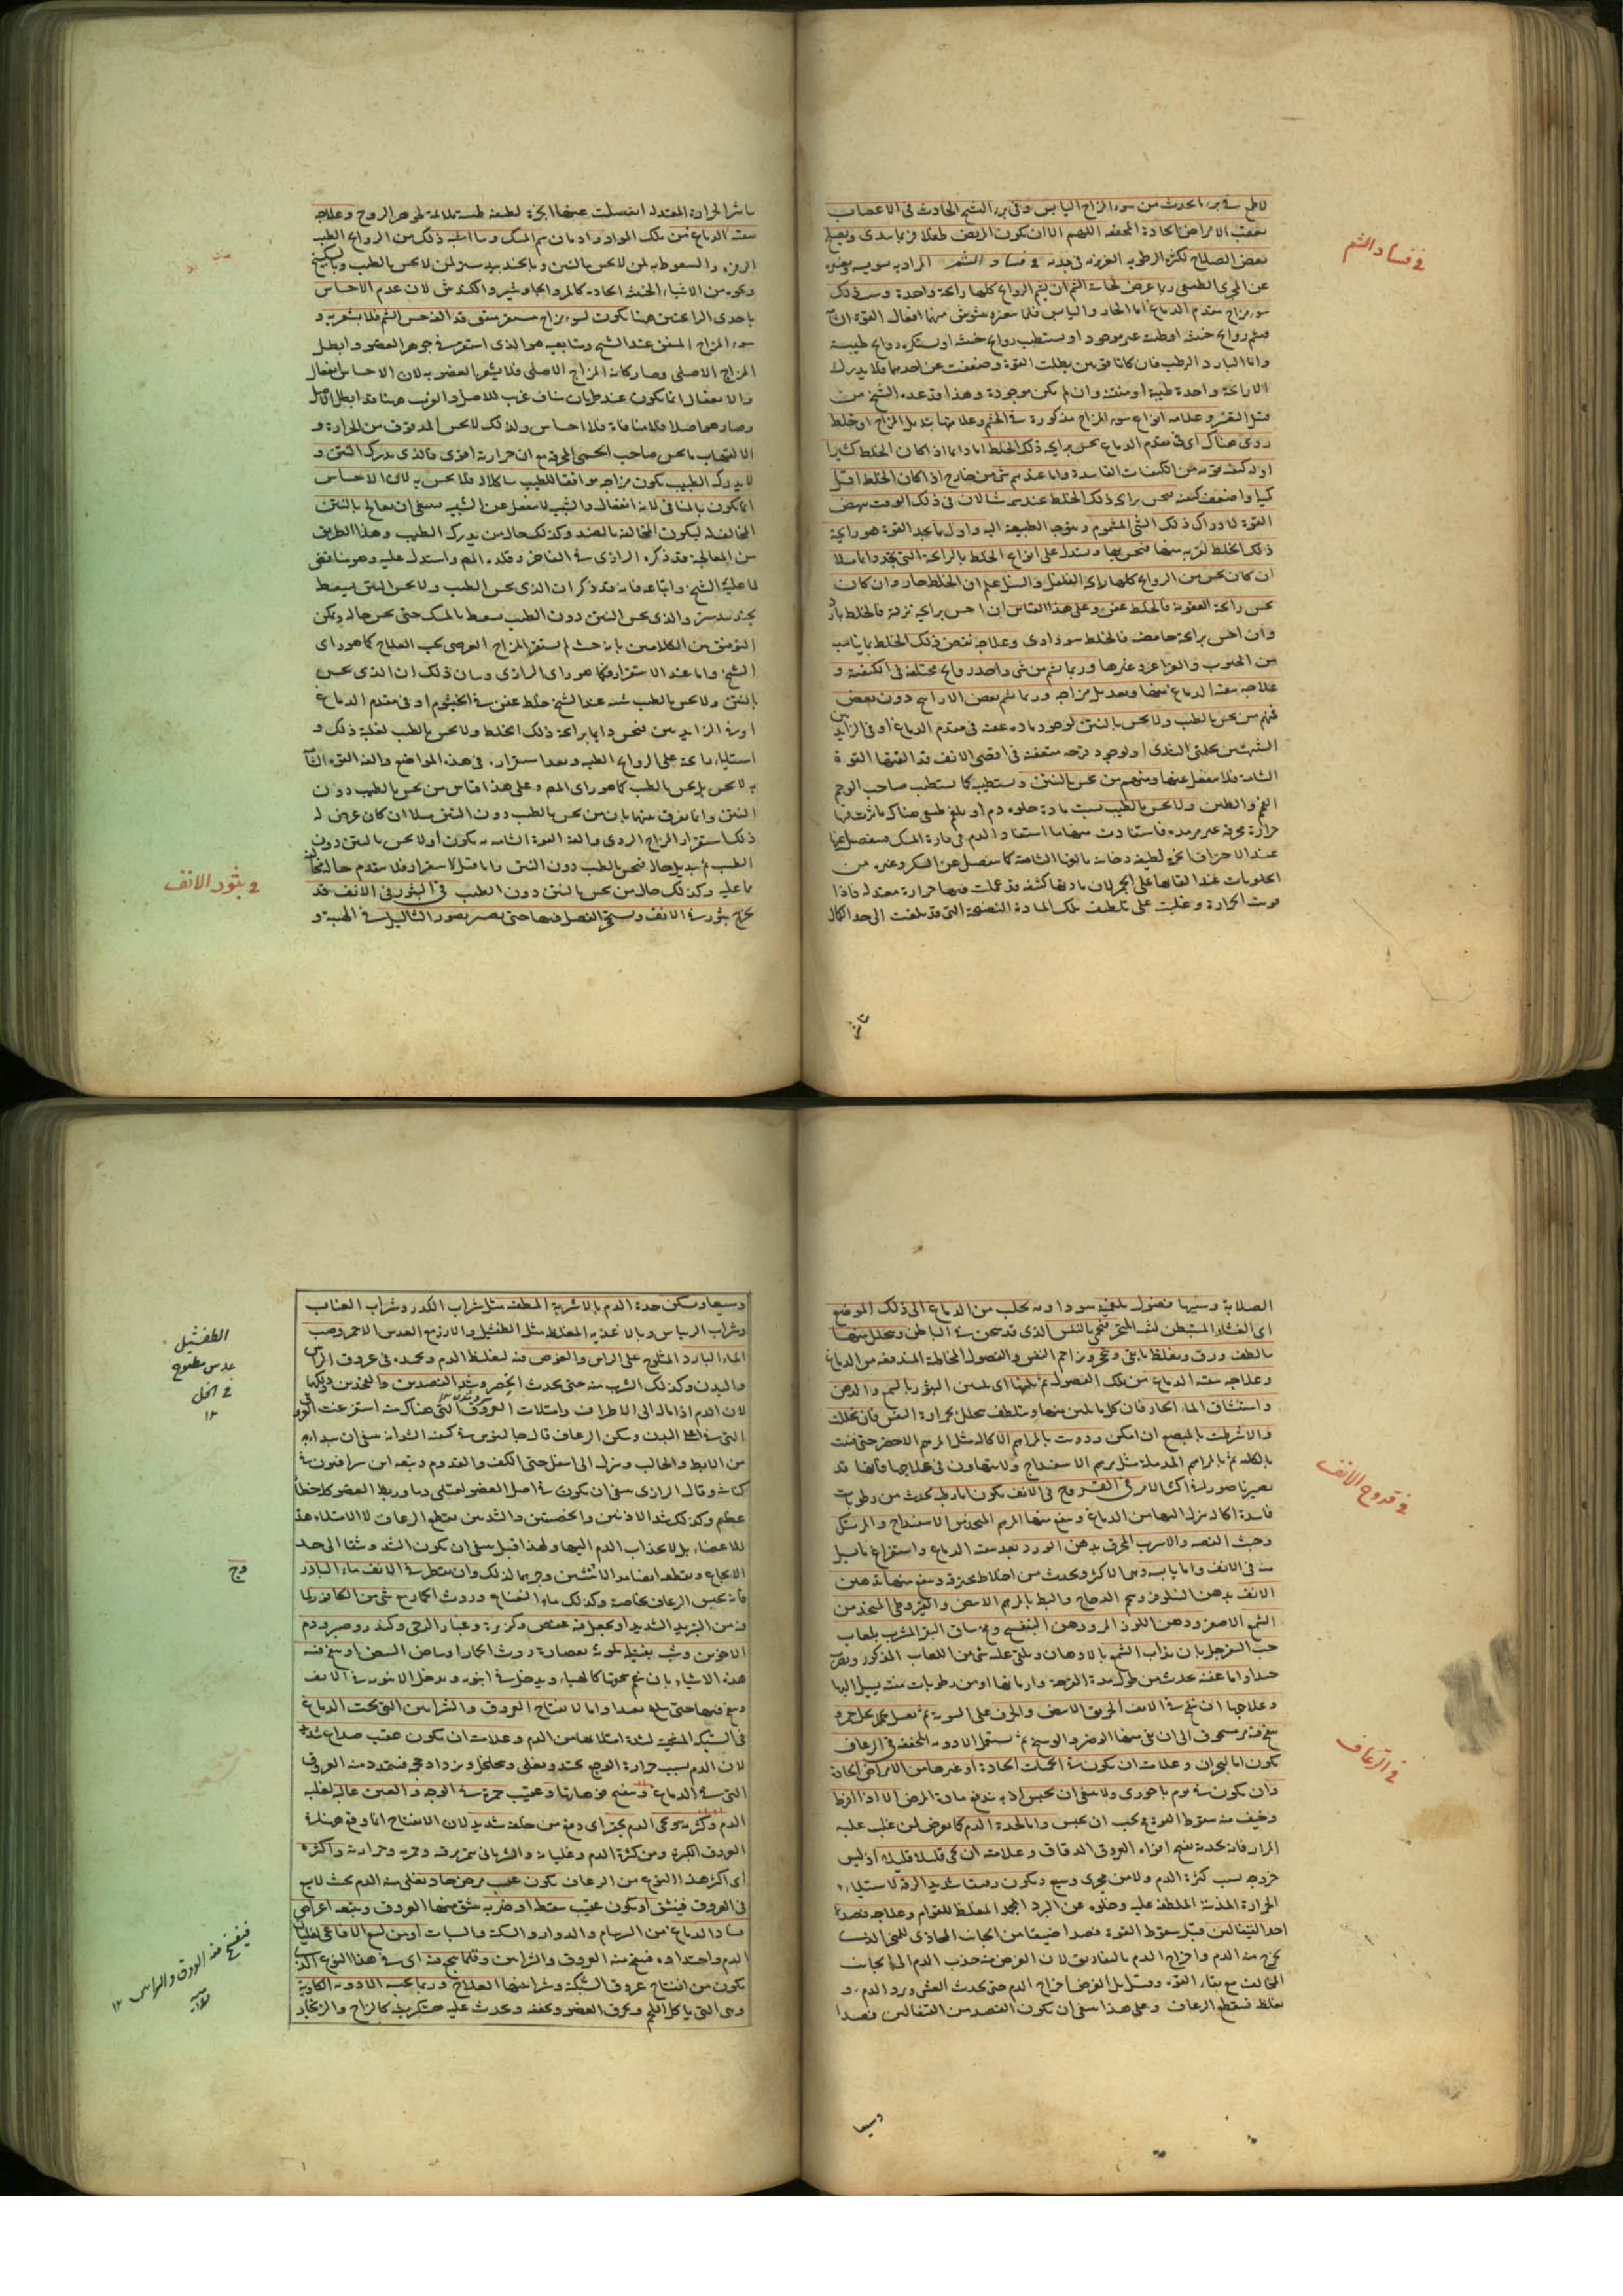 في فساد الشم
لا طمع في برء الحادث من سوء المزاج اليابس وفي برء الشم الحادث في الاعصاب
بعقب الامراض الحادة المجففة اللهم الا ان يكون المريض طفلا فربما يبدى ويصلح
بعض الصلاح لكثرة الرطوبة الغريزية في بدنه في فساد الشم المراد به
عن المجرى الطبيعى ربما عرض لحاسة الشم ان يشم الروايح كلها رايحة واحدة وسبب ذلك
سوء مزاج مقدم الدماغ اما الحار واليابس فلا
فيشم روايح خبيثة او طيبة غير موجودة او يستطيب روايح خبيثة او يستكره روايح طيبة
واما البارد الرطب فان كانا قويين بطلت القوة وضعفت عن احدهما فلا يدرك
الا رايحة واحدة طيبة او منتنة وان لم يكن موجودة وهذا قد عده الشيخ من
وعلامة انواع سوء المزاج مذكورة في الخشم وعلامتها تبديل المزاج او خلط
ردى هناك اى في مقدم الدماغ يحس برايحة ذلك الخلط اما دايما اذا كان الخلط كثيرا
او له كيفية قوية من الكيفيات الفاسدة واما عند شم شى من خارج اذا كان الخلط اقل
كميا واضعف كيفية فيحس برايحة ذلك الخلط عند شمه شيا لان في ذلك الوقت ينهض
القوة لادراك ذلك الشى المشموم ويتوجه الطبيعة اليه واول ما يجد القوة هو رايحة
ذلك الخلط لقربه منها فيحس بها ويستدل على انواع الخلط بالرايحة التى يجد دايما مثلا
ان كان يحس من الروايح كلها رايحة الفلفل والسنبل علم ان الخلط حار وان كان
يحس رايحة العفونة فالخلط عفن وعلى هذا القياس ان احس برايحة نزنة فالخلط بارد
وان احس برايحة حامضة فالخلط سوداوى وعلاجه نفض ذلك الخلط بما يناسب
من الحبوب والغراغر وغيرها وربما شم من شى واحد روايح مختلفة في الكيفية و
علاجه تنقية الدماغ منها وتعديل مزاجه وربما شم بعض الاراييح دون بعض
فمنهم من يحس بالطيب ولا يحس بالنتن لوجود مادة عفنة في مقدم الدماغ او في الزايدتين
الشبيهتين بحلمتى الثدى او لوجود قرحة متعفنة في اقصى الانف قد الفتها القوة
الشامة فلا ينفعل عنها ومنهم من يحس بالنتن ويستطيبه كما يستطيب صاحب الوحم
الفحم والطين ولا يحس بالطيب بسبب مادة حلوة دم او بلغم طبيعى هناك ما اثرت فيها
حرارة محرقة غير مرمدة فاستفادت منها ما استفاد الدم في فارة المسك فينفصل عنها
عند الاحتراق ابخرة لطيفة دخانية يالفها الشامة كما ينفصل عن السكر وغيره من
الحلويات عند القائها على الجمر لان مادتها كثيفة قد عملت فيها حرارة معتدلة فاذا
قويت الحرارة وغلبت على تلطيف تلك المادة النضيجة التى قد بلغت الى حد الكمال
باشر الحرارة المعتدلة انفصلت عنها ابخرة لطيفة طيبة ملائمة لجوهر الروح وعلاجه
تنقية الدماغ من تلك المواد وادمان شم المسك وما اشبه ذلك من الروايح الطيبة
والسعوط به لمن لا يحس بالنتن وبالجندبيدستر لمن لا يحس بالطيب وبالسكبينج
ونحوه من الاشياء الخبيثة الحادة كالمر والجاوشير والكندش لان عدم الاحساس
باحدى الرايحتين هنا يكون لسوء مزاج مستقر متفق قد الفه حس الشم فلا يشعر به و
سوء المزاج المتفق عند الشيخ ومتابعيه هو الذى استقر في جوهر العضو وابطل
المزاج الاصلى وصار كانه المزاج الاصلى فلا يشعر العضو به لان الاحساس انفعال
والانفعال انما يكون عند طريان مناف غريب للاصل والغريب هنا قد ابطل الاصل
وصار هو اصلا فلا منافاة فلا احساس ولذلك لا يحس المدقوق من الحرارة و
الالتهاب ما يحس صاحب الحمى المحرقة مع ان حرارته اقوى فالذى يدرك النتن و
لا يدرك الطيب يكون مزاجه موافقا للطيب مشاكلا له فلا يحس به لان الاحساس
انما يكون بالمنافى لانه انفعال والشبيه لا ينفعل عن الشبيه فينبغى ان يعالج بالنتن
المخالف له ليكون المخالفة بالضد وكذلك حال من يدرك الطيب وهذا الطريق
من المعالجة قد ذكره الرازى في الفاخر وقلده المص واستدل عليه وهو يناقض
لما عليه الشيخ واتباعه فانه قد ذكر ان الذى يحس الطيب ولا يحس النتن يسعط
بجندبيدستر والذى يحس النتن دون الطيب يسعط بالمسك حتى يحس حاله ويمكن
التوفيق بين الكلامين بانه حيث لم يستقر المزاج العرضى يجب العلاج كما هو راى
الشيخ واما عند الاستقرار فكما هو راى الرازى وبيان ذلك ان الذى يحس
بالنتن ولا يحس بالطيب سببه عند الشيخ خلط عفن في الخيشوم او في مقدم الدماغ
او في الزايدتين فيحس دايما برايحة ذلك الخلط ولا يحس بالطيب لغلبة ذلك و
استيلاء رايحته على الروايح الطيبة وبعد استقراره في هذه المواضع والفه القوة الشامة
به لا يحس به بل يحس بالطيب كما هو راى المص وعلى هذا قياس من يحس بالطيب دون
النتن وانما يفرق بينهما بان من يحس بالطيب دون النتن مثلا ان كان عرض له
ذلك استقرار المزاج الردى والفه القوة الشامة به يكون اولا يحس بالنتن دون
الطيب ثم تبديل حاله فيحس بالطيب دون النتن واما قبل الاستقرار فلا يتقدم حالة مخالفة
لما عليه وكذلك حال من يحس بالنتن دون الطيب في البثور في الانف قد
يخرج بثور في الانف ويستحجر الفضل فيها حتى يصير بصورة الثاليل في الهيئة و
في بثور الانف
الصلابة وسببها فضول بلغمية سوداوية يجلب من الدماغ الى ذلك الموضع
اى الغشاء المستبطن لثقبة المنخر فيحمى بالنفس الذى قد سخن في الباطن ويحلل منها
ما لطف ورق ويغلظ ما بقى ويحجر ويزاحم النفس والفضول المخاطية المندفعة من الدماغ
وعلاجه تنقية الدماغ من تلك الفضول ثم تليينها اى تليين البثور بالشحم والدهن
واستنشاق الماء الحار فان كل ما يلين منها ويتلطف يتحلل بحرارة النفس فان تحللت
والا شرطت بالمبضع ان امكن ودويت بالمراهم الاكالة مثل المرهم الاخضر حتى تفنى
بالكلية ثم بالمراهم المدملة مثل مرهم الاسفيداج ولا يتهاون في علاجها فانها قد
تصير ناصورا في اكثر الامر في القروح في الانف يكون اما رطبة يحدث من رطوبات
فاسدة اكالة ينزل اليها من الدماغ وينفع منها المرهم المتخذ من الاسفيداج والمرتك
وخبث الفضة والاسرب المحرق بدهن الورد بعد تنقية الدماغ واستفراغ ما يسيل
منه في الانف واما يابسة وهى الاكثر ويحدث من اخلاط محترقة وينفع منها تدهين
الانف بدهن النيلوفر وشحم الدجاج والبط بالمرهم الابيض والقيروطى المتخذ من
الشمع الاصفر ودهن اللوز المر ودهن البنفسج ومخ ساق البقر المشرب بلعاب
حب السفرجل بان يذاب الشمع بالادهان ويلقى عليه شى من اللعاب المذكور ويضرب
جيدا واما عفنة يحدث من طول مدة القرحة وازمانها او من رطوبات منتنة يسيل اليها
وعلاجها ان ينفخ في الانف الخربق الابيض والحرف على السوية ثم يغسل بخمر بكل مرة
ينفخ فيه مسحوق الى ان ينقى منها الوضر والوسخ ثم يستعمل الادوية المجففة في الرعاف
يكون اما لبحران وعلامته ان يكون في الحميات الحادة او غيرها من الامراض الحادة
وان يكون في يوم باحورى ولا ينبغى ان يحبس اذ به يدفع مادة المرض الا اذا افرط
وخيف منه سقوط القوة فيجب ان يحبس واما لحدة الدم كما يعرض لمن غلب عليه
المرار فانه بحدته يفتح افواه العروق الدقاق وعلامته ان يجى قليلا قليلا اذ ليس
خروجه بسبب كثرة الدم ولا من مجرى وسيع ويكون رقيقا شديد الرقة لاستيلاء
الحرارة المذيبة الملطفة عليه وخلوه عن البرد المجمد المغلظ للقوام وعلاجه فصد
احد القيفالين قبل سقوط القوة فصدا ضيقا من الجانب المحاذى للمنخر الذى
يخرج منه الدم واخراج الدم بالتفاريق لان الغرض منه جذب الدم الى الجانب
المخالف مع بقاء القوة وقيل بل الغرض اخراج الدم حتى يحدث الغشى ويبرد الدم و
يغلظ فينقطع الرعاف وعلى هذا ينبغى ان يكون الفصد من القيفالين فصدا
وسيعا
في قروح الانف
في الرعاف
وسيعا ويسكن حدة الدم بالاشربة المطفية مثل شراب الكدر وشراب العناب
وشراب الريباس وبالاغذية المغلظة مثل الطفشيل والارز مع العدس الاحمر وصب
الماء البارد المثلوج على الراس والغرض منه تغليظ الدم وتجميده في عروق الراس
والبدن وكذلك الشرب منه حتى يحدث الخصر وشد العضدين والفخذين ودلكهما
لان الدم اذا مال الى الاطراف وامتلات العروق التى هناك منه استفرغت العروق
التى في اعلى البدن وسكن الرعاف قال جالينوس في كيفية الشد انه ينبغى ان يبدا به
من الابط والحالب وينزل الى اسفل حتى الكف والقدم وتبعه ابن سرافيون في
كناشه وقال الرازى ينبغى ان يكون في اصل العضو ليمتلى دما وربط العضو كله خطأ
عظيم وكذلك شد الاذنين والخصيتين والثديين يقطع الرعاف لا لامتلاء هذه
الاعضاء بل لانجذاب الدم اليها ولهذا قيل ينبغى ان يكون الشد وثيقا الى حد
الايجاع ويقطعه ايضا مد الانثيين وجرهما لذلك وان يقطر في الانف ماء الباذروج
فانه يحبس الرعاف بخاصية وكذلك ماء النعناع وروث الحمار مع شى من الكافور لما
فيه من التبريد الشديد او يجعل فيه عفص وكزبرة وغبار الرحى وكندر وصبر ودم
الاخوين وشب بفتيلة ملوثة بعصارة روث الحمار او بياض البيض او ينفخ فيه
هذه الاشياء بان ينعم سحقها كالهباء ويدخل في انبوبة ويدخل الانبوبة في الانف
وينفخ فيها حتى يبلغ بعيدا واما لانفتاح العروق والشرايين التى تحت الدماغ
في الشبكة المشيمية لشدة امتلائها من الدم وعلامته ان يكون عقيب صداع شديد
لان الدم بسبب حرارة الوجع يحتد ويغلى ويتخلخل ويزداد حجمه فيتمدد منه العروق
التى في الدماغ وينفتح فوهاتها وعقيب حمرة في الوجه والعين عالية لغلبة
الدم وكثرته ويجى الدم بحفز اى دفع من خلفه شديد لان الانفتاح انما وقع هنا في
العروق الكبيرة ومن كثرة الدم وغليانه والشريانى يتميز برقته وحمرته وحرارته واكثره
اى اكثر هذا النوع من الرعاف يكون عقيب مرض حاد يغلى منه الدم بحيث لا يسع
في العروق فينشق او يكون عقيب سقطة او ضربة ينشق منها العروق ويتبعه اعراض
فساد الدماغ من السهر والدوار والسكتة والسبات او من لسع الافاعى لغليان
الدم واحتداده فينفتح منه العروق والشرايين وقلما ينجع فيه اى في هذا النوع الذى
يكون من انفتاح عروق الشبكة وشرايينها العلاج وربما يحبسه الادوية الكاوية
وهى التى ياكل اللحم ويحرق العضو ويجففه ويحدث عليه خشكريشة كالزاج والزنجار
الطفشيل
عدس مطبوخ
في الخل
١٢
وج
فينفتح منه العروق والشرايين ١٢